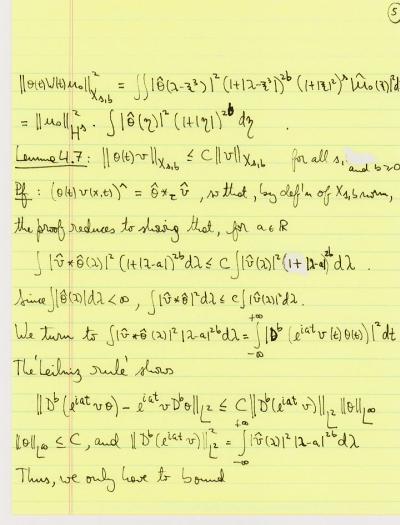 5
||θ(t)W(t)u₀||²_{X_{s,b}} = ∫∫ |θ̂(λ-ξ³)|² (1+|λ-ξ³|)^{2b} (1+|ξ|)^{2s} |û₀(ξ)|² d
= ||u₀||²_{H^s} · ∫ |θ̂(η)|² (1+|η|)^{2b} dη .
Lemma 4.7: ||θ(t)v||_{X_{s,b}} ≤ C||v||_{X_{s,b}} for all s, and b≥0
Pf: (θ(t)v(x,t))^ = θ̂ *_τ v̂, so that, by def'n of X_{s,b} norm,
the proof reduces to showing that, for a∈ℝ
∫ |v̂*θ̂(λ)|² (1+|λ-a|)^{2b} dλ ≤ C ∫ |v̂(λ)|² (1+|λ-a|)^{2b} dλ .
Since ∫|θ̂(λ)|dλ < ∞, ∫|v̂*θ̂|² dλ ≤ c∫|v̂(λ)|² dλ.
We turn to ∫|v̂*θ̂(λ)|² |λ-a|^{2b} dλ = ∫_{-∞}^{+∞} |D^b(e^{iat} v(t)θ(t))|² dt
The 'Leibniz rule' shows
||D^b(e^{iat}vθ) - e^{iat}vD^bθ||_{L²} ≤ C||D^b(e^{iat}v)||_{L²} ||θ||_{L^∞}
||θ||_{L^∞} ≤ C, and ||D^b(e^{iat}v)||²_{L²} = ∫_{-∞}^{+∞} |v̂(λ)|² |λ-a|^{2b} dλ
Thus, we only have to bound